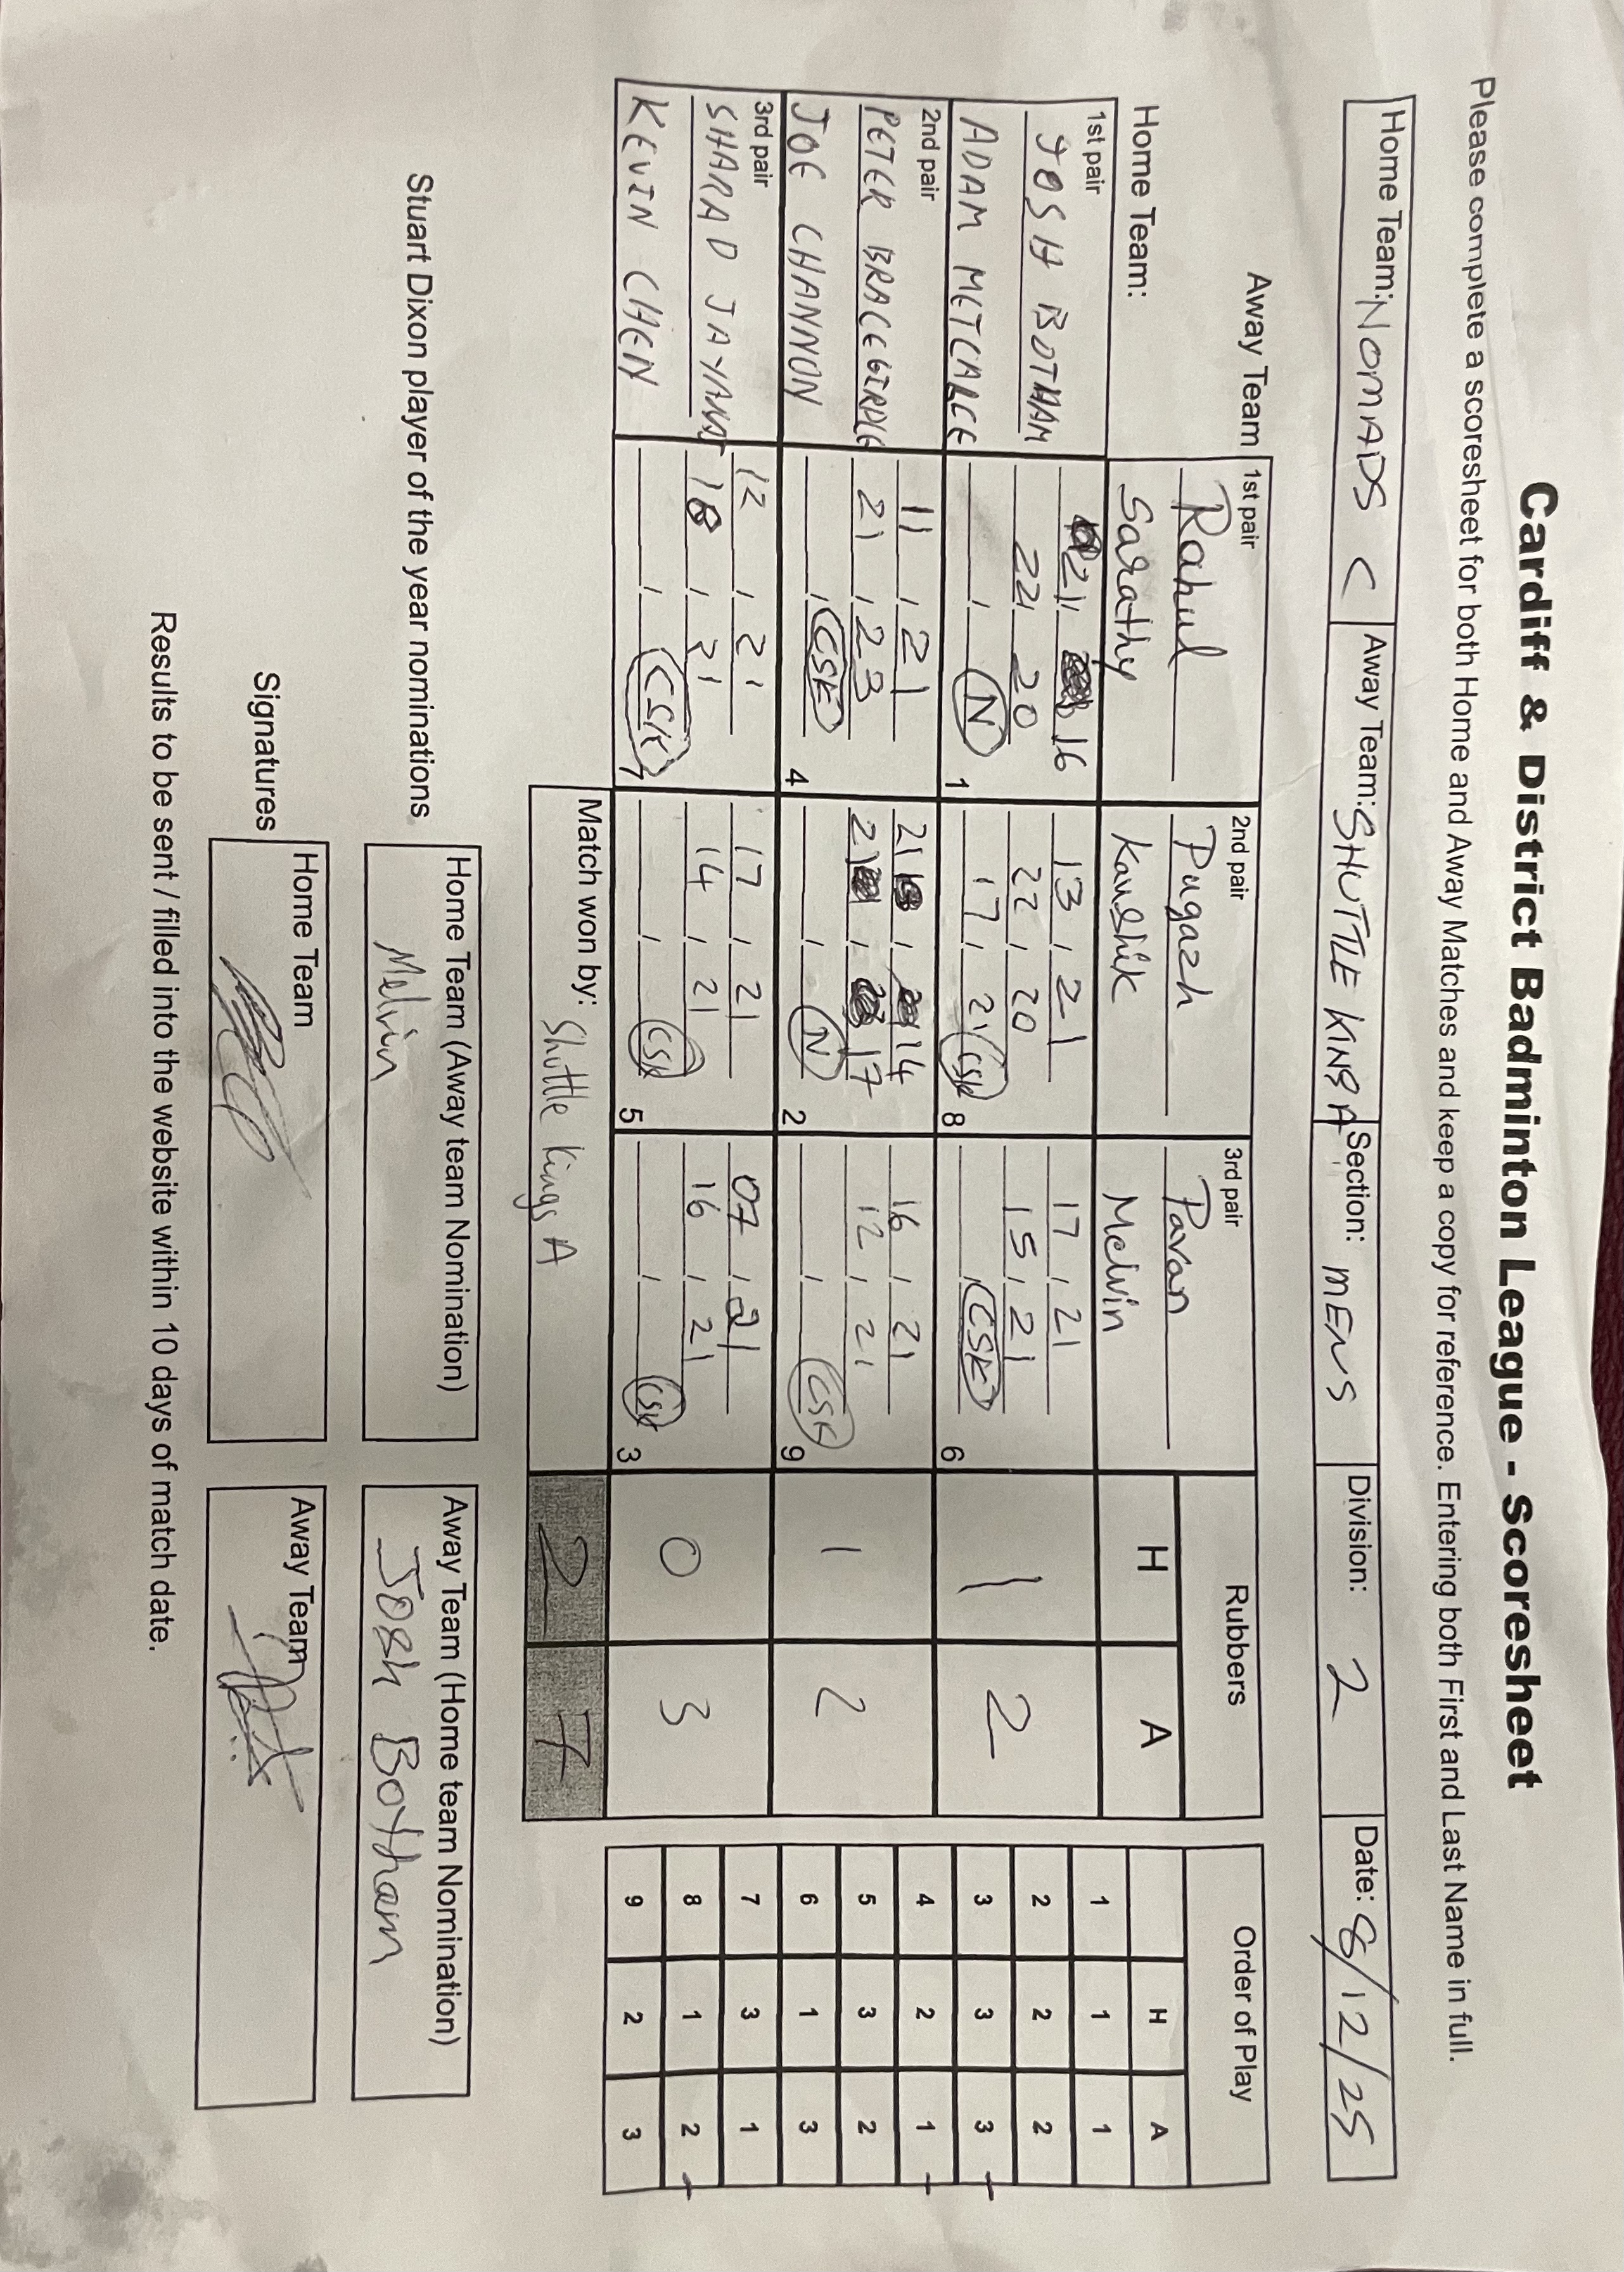 Cardiff & District Badminton League - Scoresheet
Please complete a scoresheet for both Home and Away Matches and keep a copy for reference. Entering both First and Last Name in full.
Home Team: NOMADS C Away Team: SHUTTLE KINGS A Section: MENS Division: 2 Date: 8/12/25
Away Team 1st pair Rahul Sarathy 2nd pair Pugazh Kaushik 3rd pair Pavan Melvin Rubbers
Home Team: H A
1st pair
JOSH BOTHAM
ADAM METCALFE
21, 16
22, 20
, N
1
13, 21
22, 20
17, 21 CSK
8
17, 21
15, 21
, CSK
6
1 2
2nd pair
PETER BRACEGIRDLE
JOE CHANNON
11, 21
21, 23
, CSK
4
21, 14
21, 17
, N
2
16, 21
12, 21
, CSK
9
1 2
3rd pair
SHARAD JAYANT
KEVIN CHEN
12, 21
18, 21
, CSK
7
17, 21
14, 21
, CSK
5
07, 21
16, 21
, CSK
3
0 3
Match won by: Shuttle Kings A 2 7
Order of Play
H A
1 1 1
2 2 2
3 3 3
4 2 1
5 3 2
6 1 3
7 3 1
8 1 2
9 2 3
Stuart Dixon player of the year nominations
Home Team (Away team Nomination)
Melvin
Away Team (Home team Nomination)
Josh Botham
Signatures
Home Team
Away Team
Results to be sent / filled into the website within 10 days of match date.